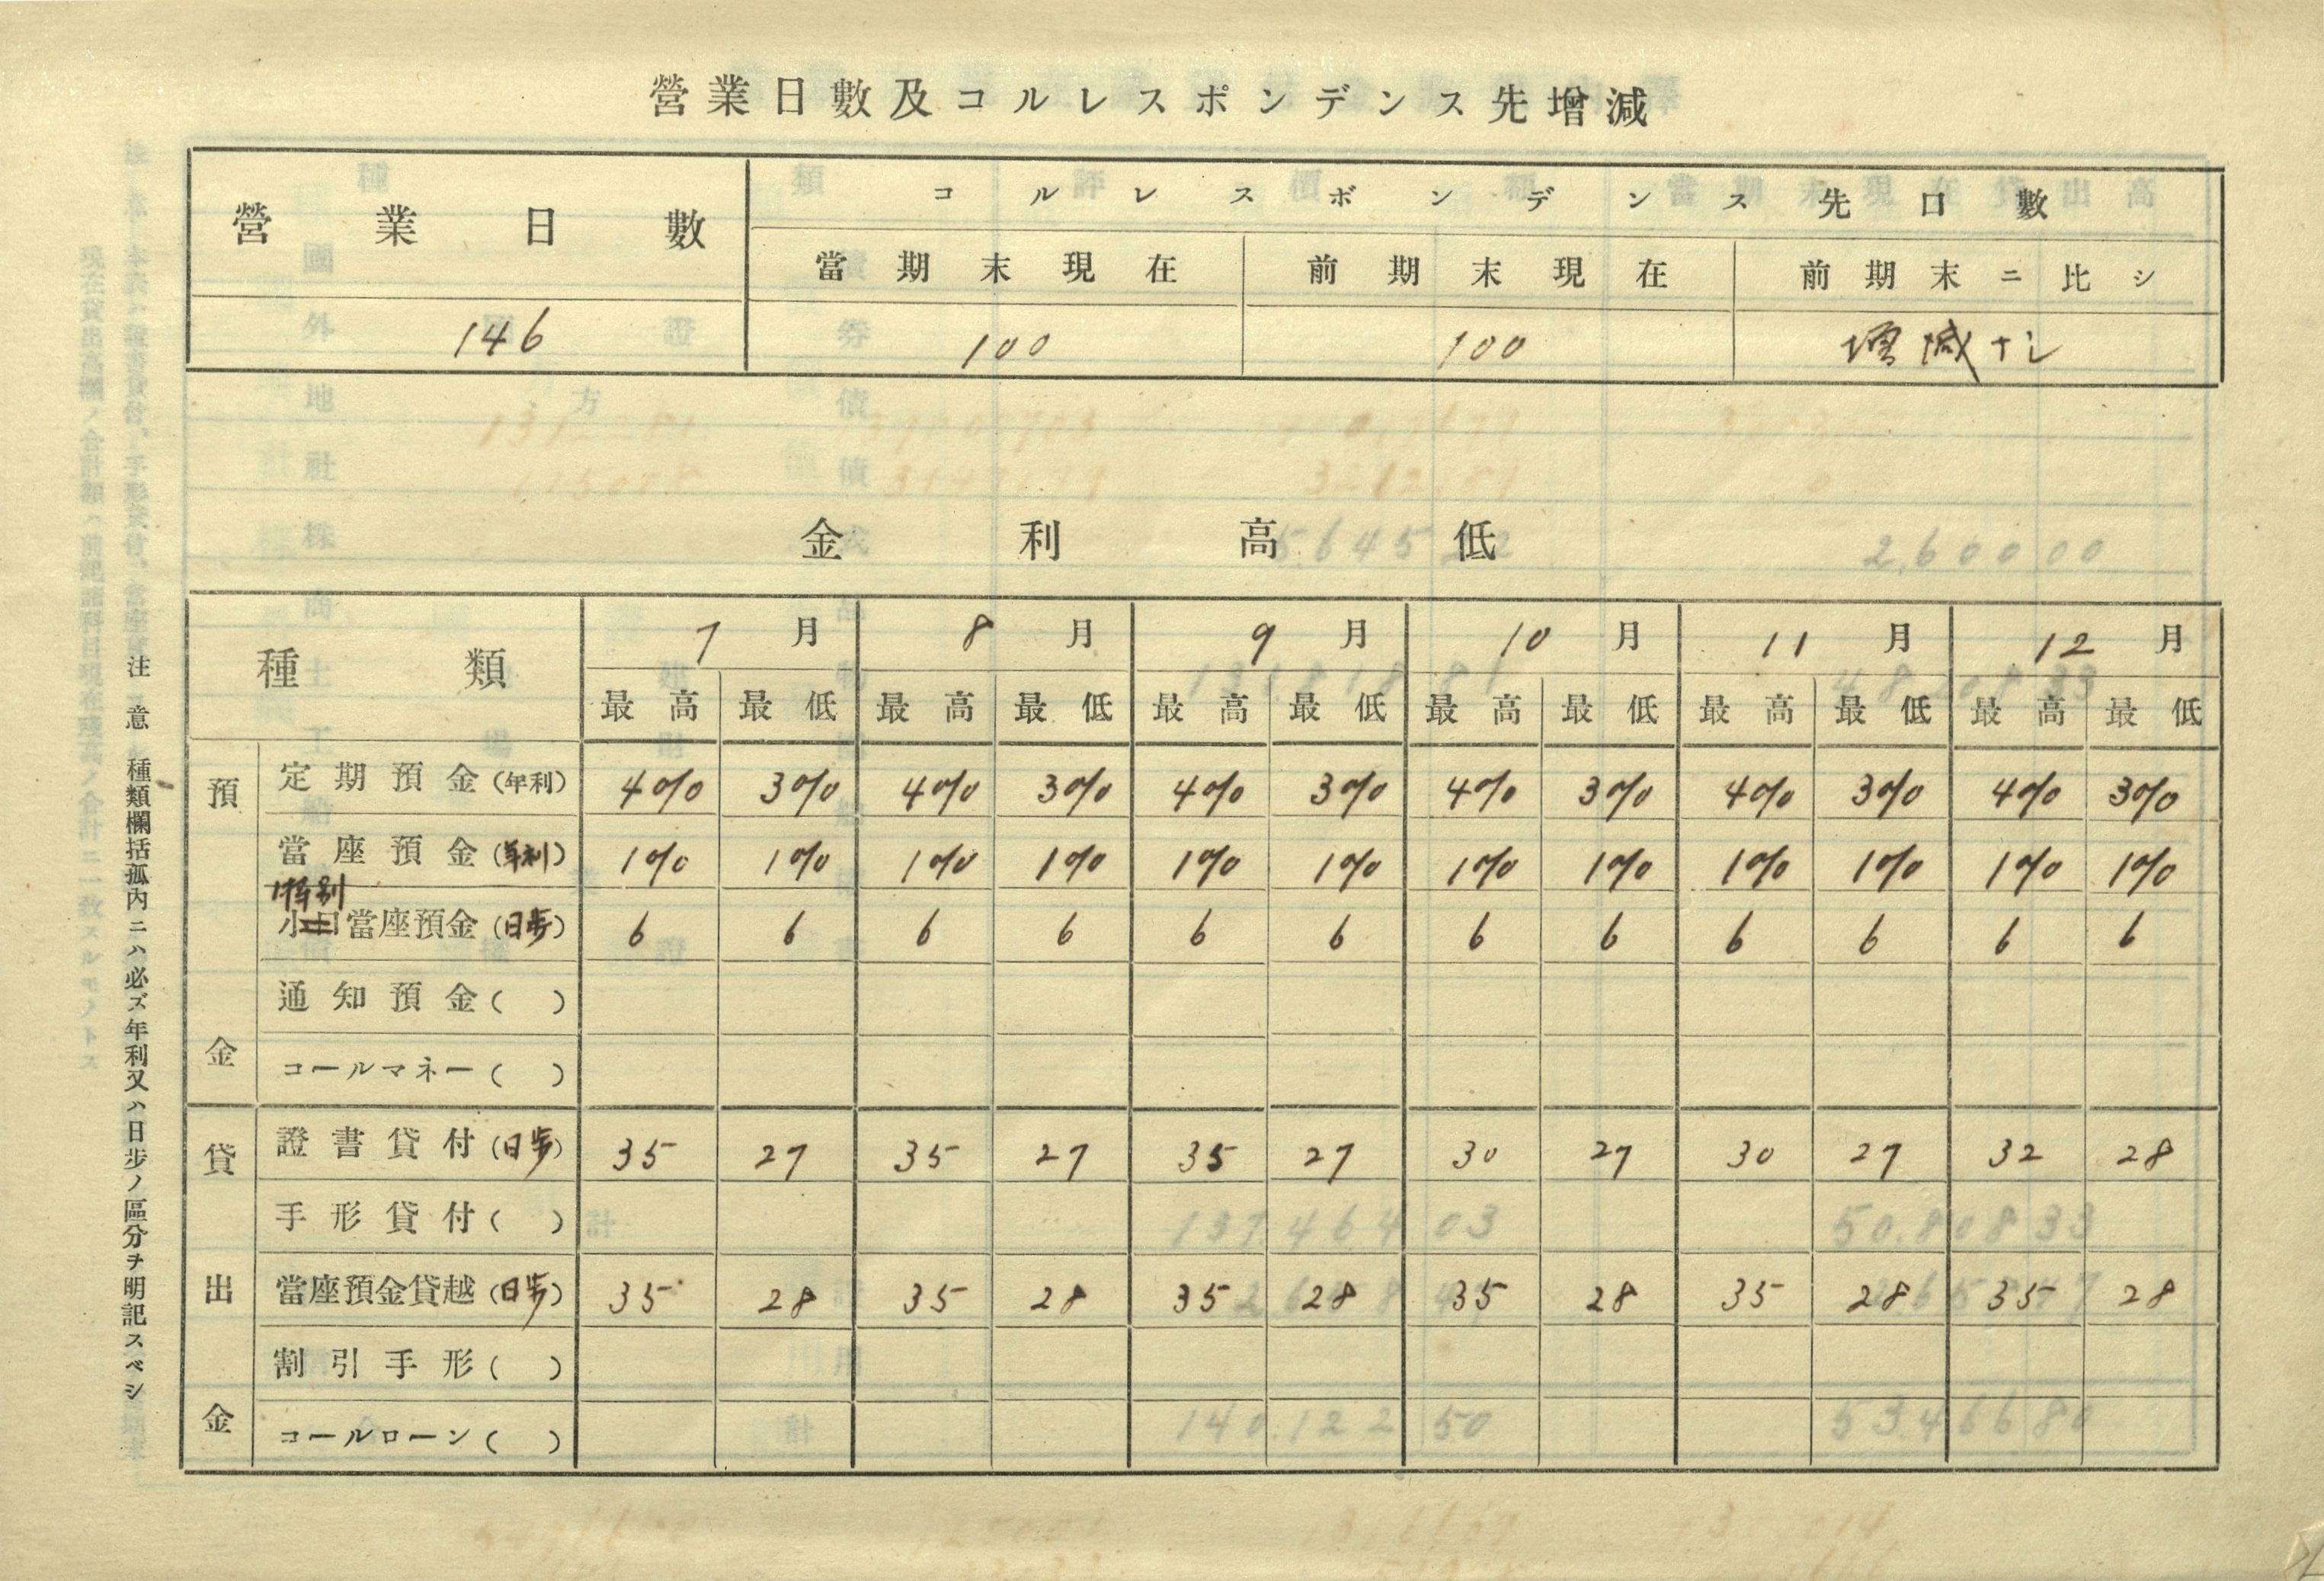 營業日數及コルレスポンデンス先增減
營業日數 コルレスポンデンス先口數
當期末現在 前期末現在 前期末ニ比シ
146 100 100 增減ナシ
金利高低
種類 7月 8月 9月 10月 11月 12月
最高 最低 最高 最低 最高 最低 最高 最低 最高 最低 最高 最低
預金
定期預金(年利) 4% 3% 4% 3% 4% 3% 4% 3% 4% 3% 4% 3%
當座預金(年利) 1% 1% 1% 1% 1% 1% 1% 1% 1% 1% 1% 1%
特別
小口當座預金(日步) 6 6 6 6 6 6 6 6 6 6 6 6
通知預金( )
コールマネー( )
貸出金
證書貸付(日步) 35 27 35 27 35 27 30 27 30 27 32 28
手形貸付( )
當座預金貸越(日步) 35 28 35 28 35 28 35 28 35 28 35 28
割引手形( )
コールローン( )
注意 種類欄括孤內ニハ必ズ年利又ハ日步ノ區分ヲ明記スベシ